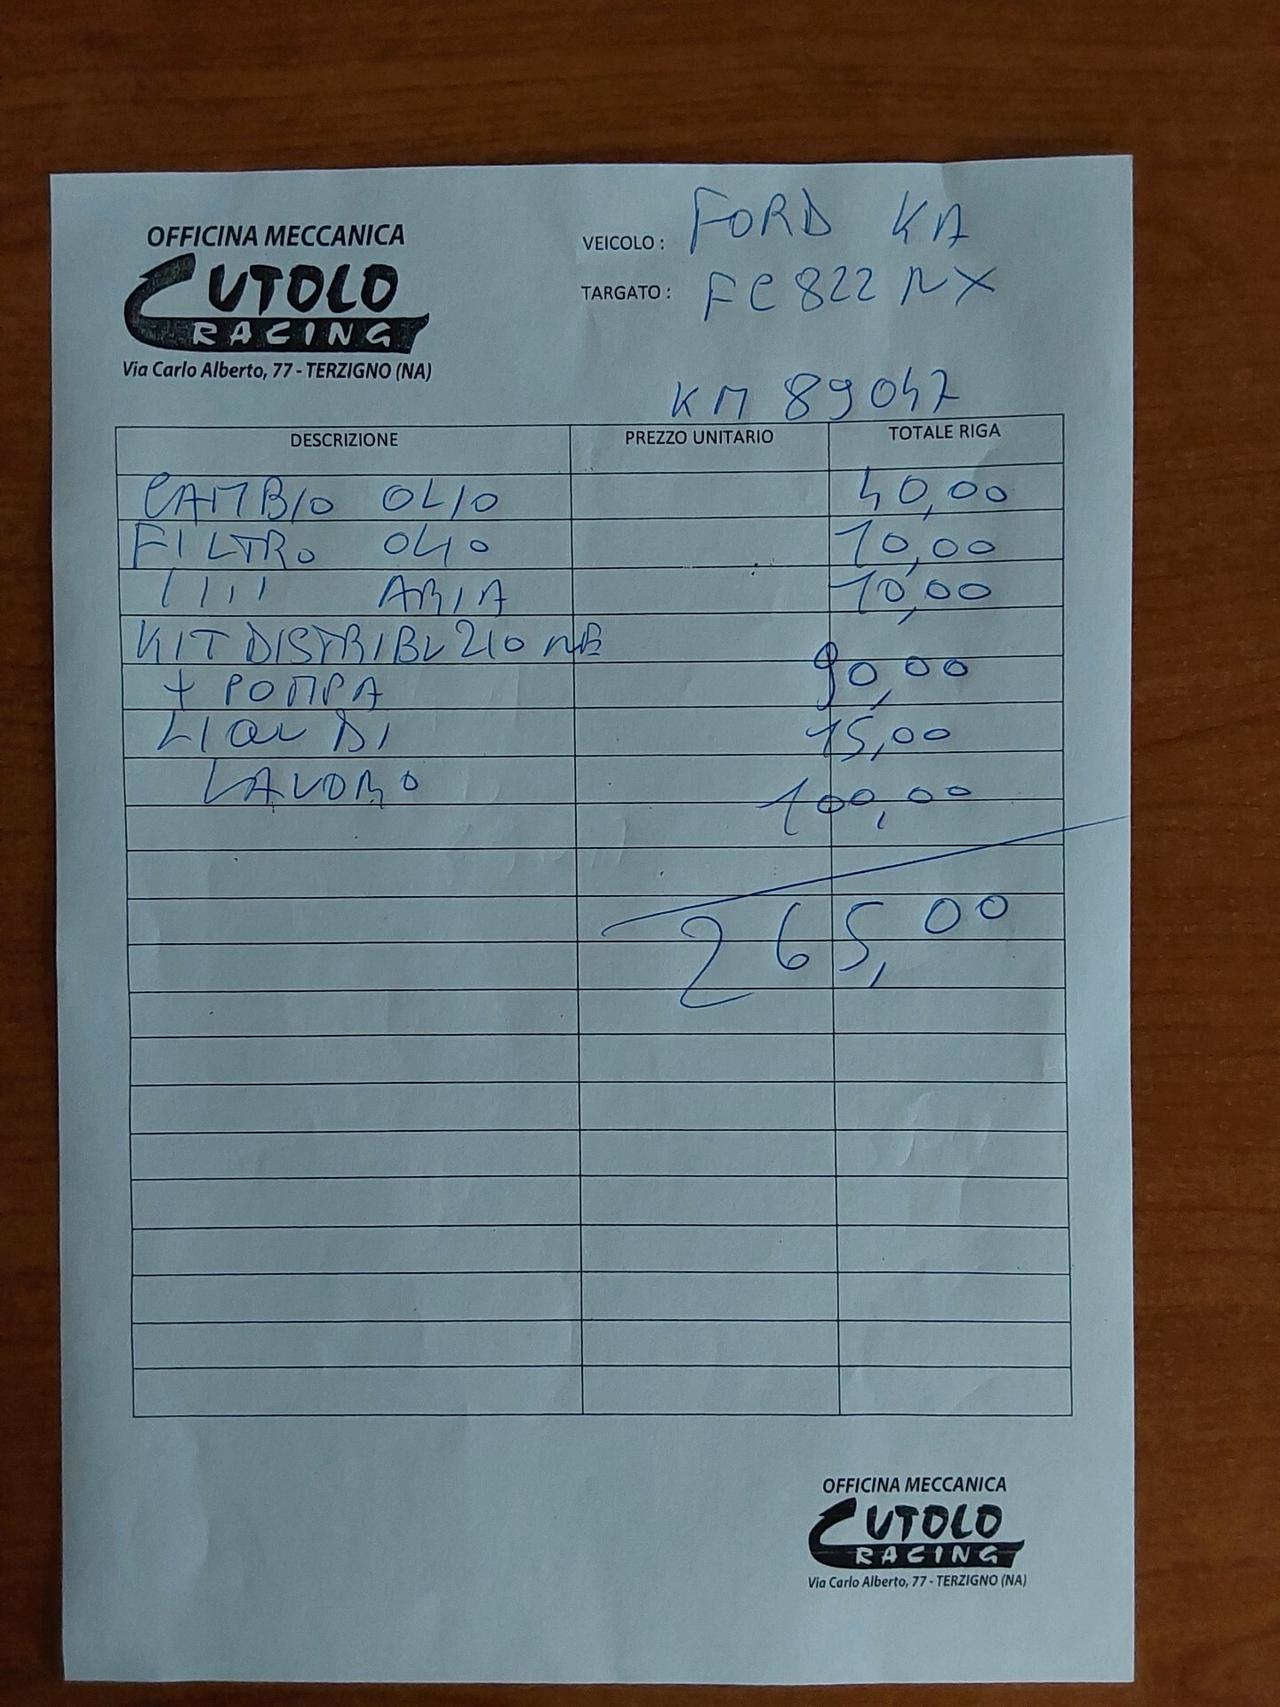 OFFICINA MECCANICA
CUTOLO
RACING
Via Carlo Alberto, 77 - TERZIGNO (NA)
VEICOLO : FORD KA
TARGATO : FC822NX
KM 89047
DESCRIZIONE PREZZO UNITARIO TOTALE RIGA
CAMBIO OLIO 40,00
FILTRO OLIO 10,00
IIII ARIA 10,00
KIT DISTRIBUZIONE
+ POMPA 90,00
LIQUIDI 15,00
LAVORO 100,00
265,00
OFFICINA MECCANICA
CUTOLO
RACING
Via Carlo Alberto, 77 - TERZIGNO (NA)